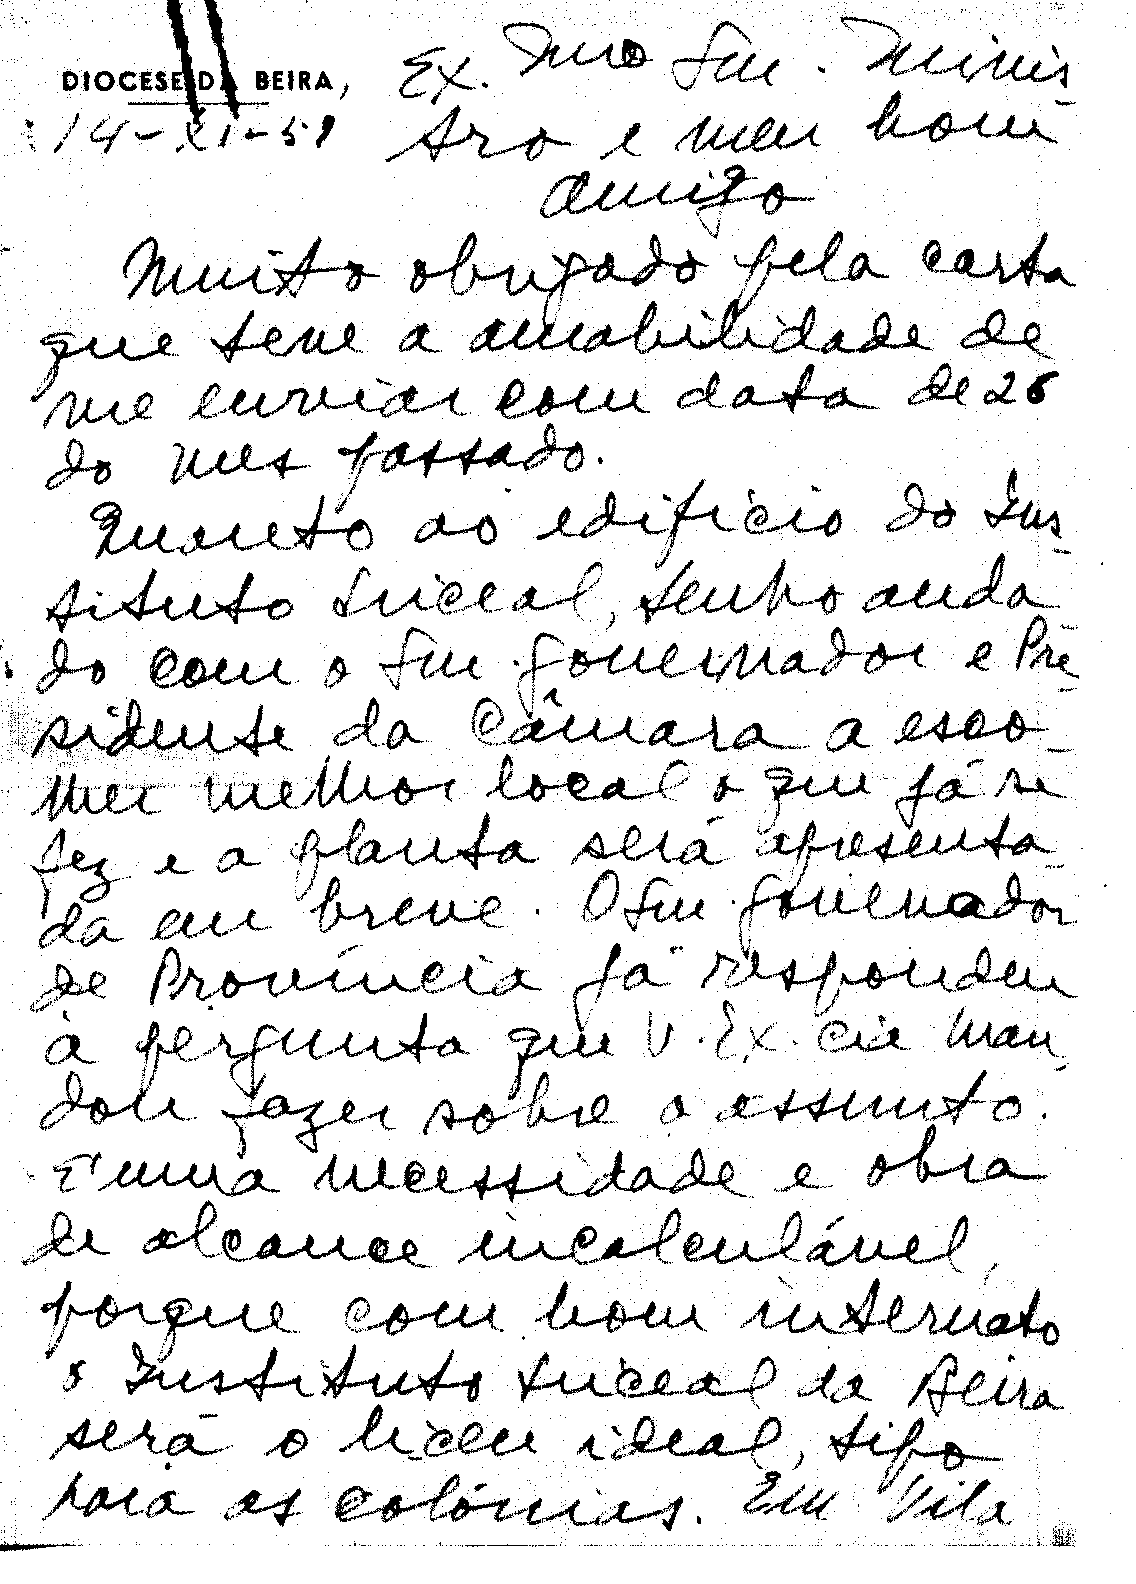 DIOCESE DA BEIRA,
14-XI-51
Ex.mo Snr. Minis-
tro e meu bom
amigo
Muito obrigado pela carta
que teve a amabilidade de
me enviar com data de 26
do mes passado.
Quanto ao edificio do Ins-
tituto Liceal, tenho anda-
do com o Snr. Governador e Pre-
sidente da Câmara a esco-
lher melhor local o que já se
fez e a planta será apresenta-
da em breve. O Snr. Governador
de Província já respondeu
à pergunta que V. Ex.cia man-
dou fazer sobre o assunto.
E' uma necessidade e obra
de alcance incalculável,
porque com bom internato
o Instituto Liceal da Beira
será o liceu ideal, tipo
para as colónias. Em Vila